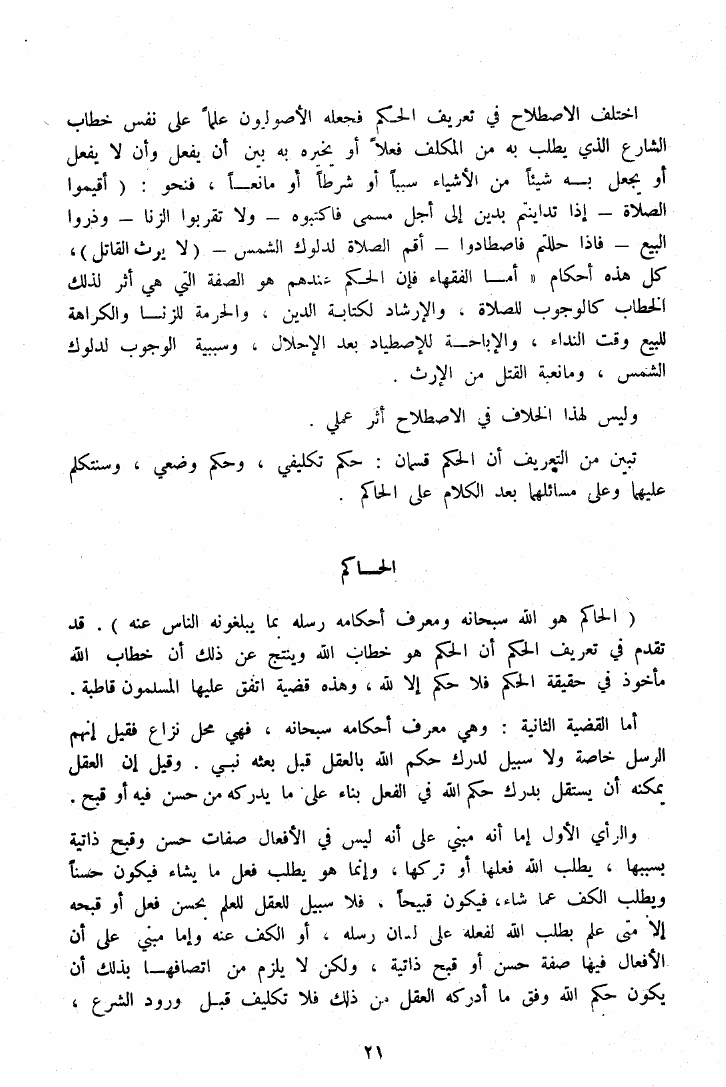 اختلف الاصطلاح في تعريف الحكم فجعله الأصوليون علماً على نفس خطاب
الشارع الذي يطلب به من المكلف فعلاً أو يخيره به بين أن يفعل وأن لا يفعل
أو يجعل بـه شيئاً من الأشياء سبباً أو شرطاً أو مانعـاً ، فنحو : ( أقيموا
الصلاة – إذا تداينتم بدين إلى أجل مسمى فاكتبوه – ولا تقربوا الزنا – وذروا
البيع – فاذا حللتم فاصطادوا – أقم الصلاة لدلوك الشمس – ( لا يرث القاتل ) ،
كل هذه أحكام « أمـا الفقهاء فإن الحـكم عندهم هو الصفة التي هي أثر لذلك
الخطاب كالوجوب للصلاة ، والإرشاد لكتابـة الدين ، والحرمة للزنـا والكراهة
للبيع وقت النداء ، والإباحـة للإصطياد بعد الإحلال ، وسببية الوجوب لدلوك
الشمس ، ومانعية القتل من الإرث .
وليس لهذا الخلاف في الاصطلاح أثر عملي .
تبين من التعريف أن الحكم قسمان : حكم تكليفي ، وحكم وضعي ، وسنتكلم
عليهما وعلى مسائلهما بعد الكلام على الحاكم .
الحـاكم
( الحاكم هو الله سبحانه ومعرف أحكامه رسله بما يبلغونه الناس عنه ) . قد
تقدم في تعريف الحكم أن الحكم هو خطاب الله وينتج عن ذلك أن خطاب الله
مأخوذ في حقيقة الحكم فلا حكم إلا لله ، وهذه قضية اتفق عليها المسلمون قاطبة .
أما القضية الثانية : وهي معرف أحكامه سبحانه ، فهي محل نزاع فقيل إنهم
الرسل خاصة ولا سبيل لدرك حكم الله بالعقل قبل بعثه نبـي . وقيل إن العقل
يمكنه أن يستقل بدرك حكم الله في الفعل بناء على ما يدركه من حسن فيه أو قبح .
والرأي الأول إما أنه مبني على أنه ليس في الأفعال صفات حسن وقبح ذاتية
بسببها ، يطلب الله فعلها أو تركها ، وإنما هو يطلب فعل ما يشاء فيكون حسناً
ويطلب الكف عما شاء، فيكون قبيحاً . فلا سبيل للعقل للعلم بحسن فعل أو قبحه
إلا متى علم بطلب الله لفعله على لسان رسله ، أو الكف عنه وإما مبني على أن
الأفعال فيها صفة حسن أو قبح ذاتية ، ولكن لا يلزم من اتصافهـا بذلك أن
يكون حكم الله وفق ما أدركه العقل من ذلك فلا تكليف قبـل ورود الشرع ،
٢١